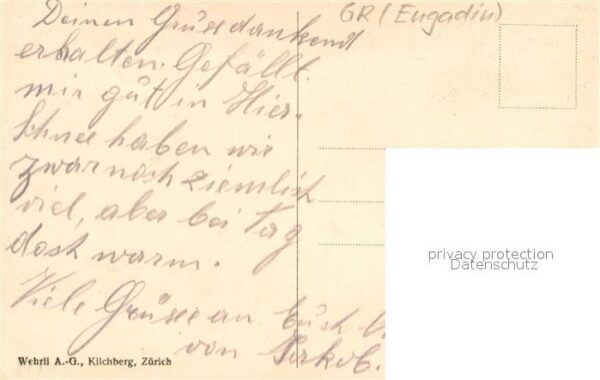 GR (Engadin)
Deinen Gruss dankend
erhalten. Gefällt
mir gut in Hier.
Schnee haben wir
zwar noch ziemlich
viel, aber bei Tag
doch warm.
Viele Grüsse an Euch
von Jakob.
privacy protection
Datenschutz
Wehrli A.-G., Kilchberg, Zürich